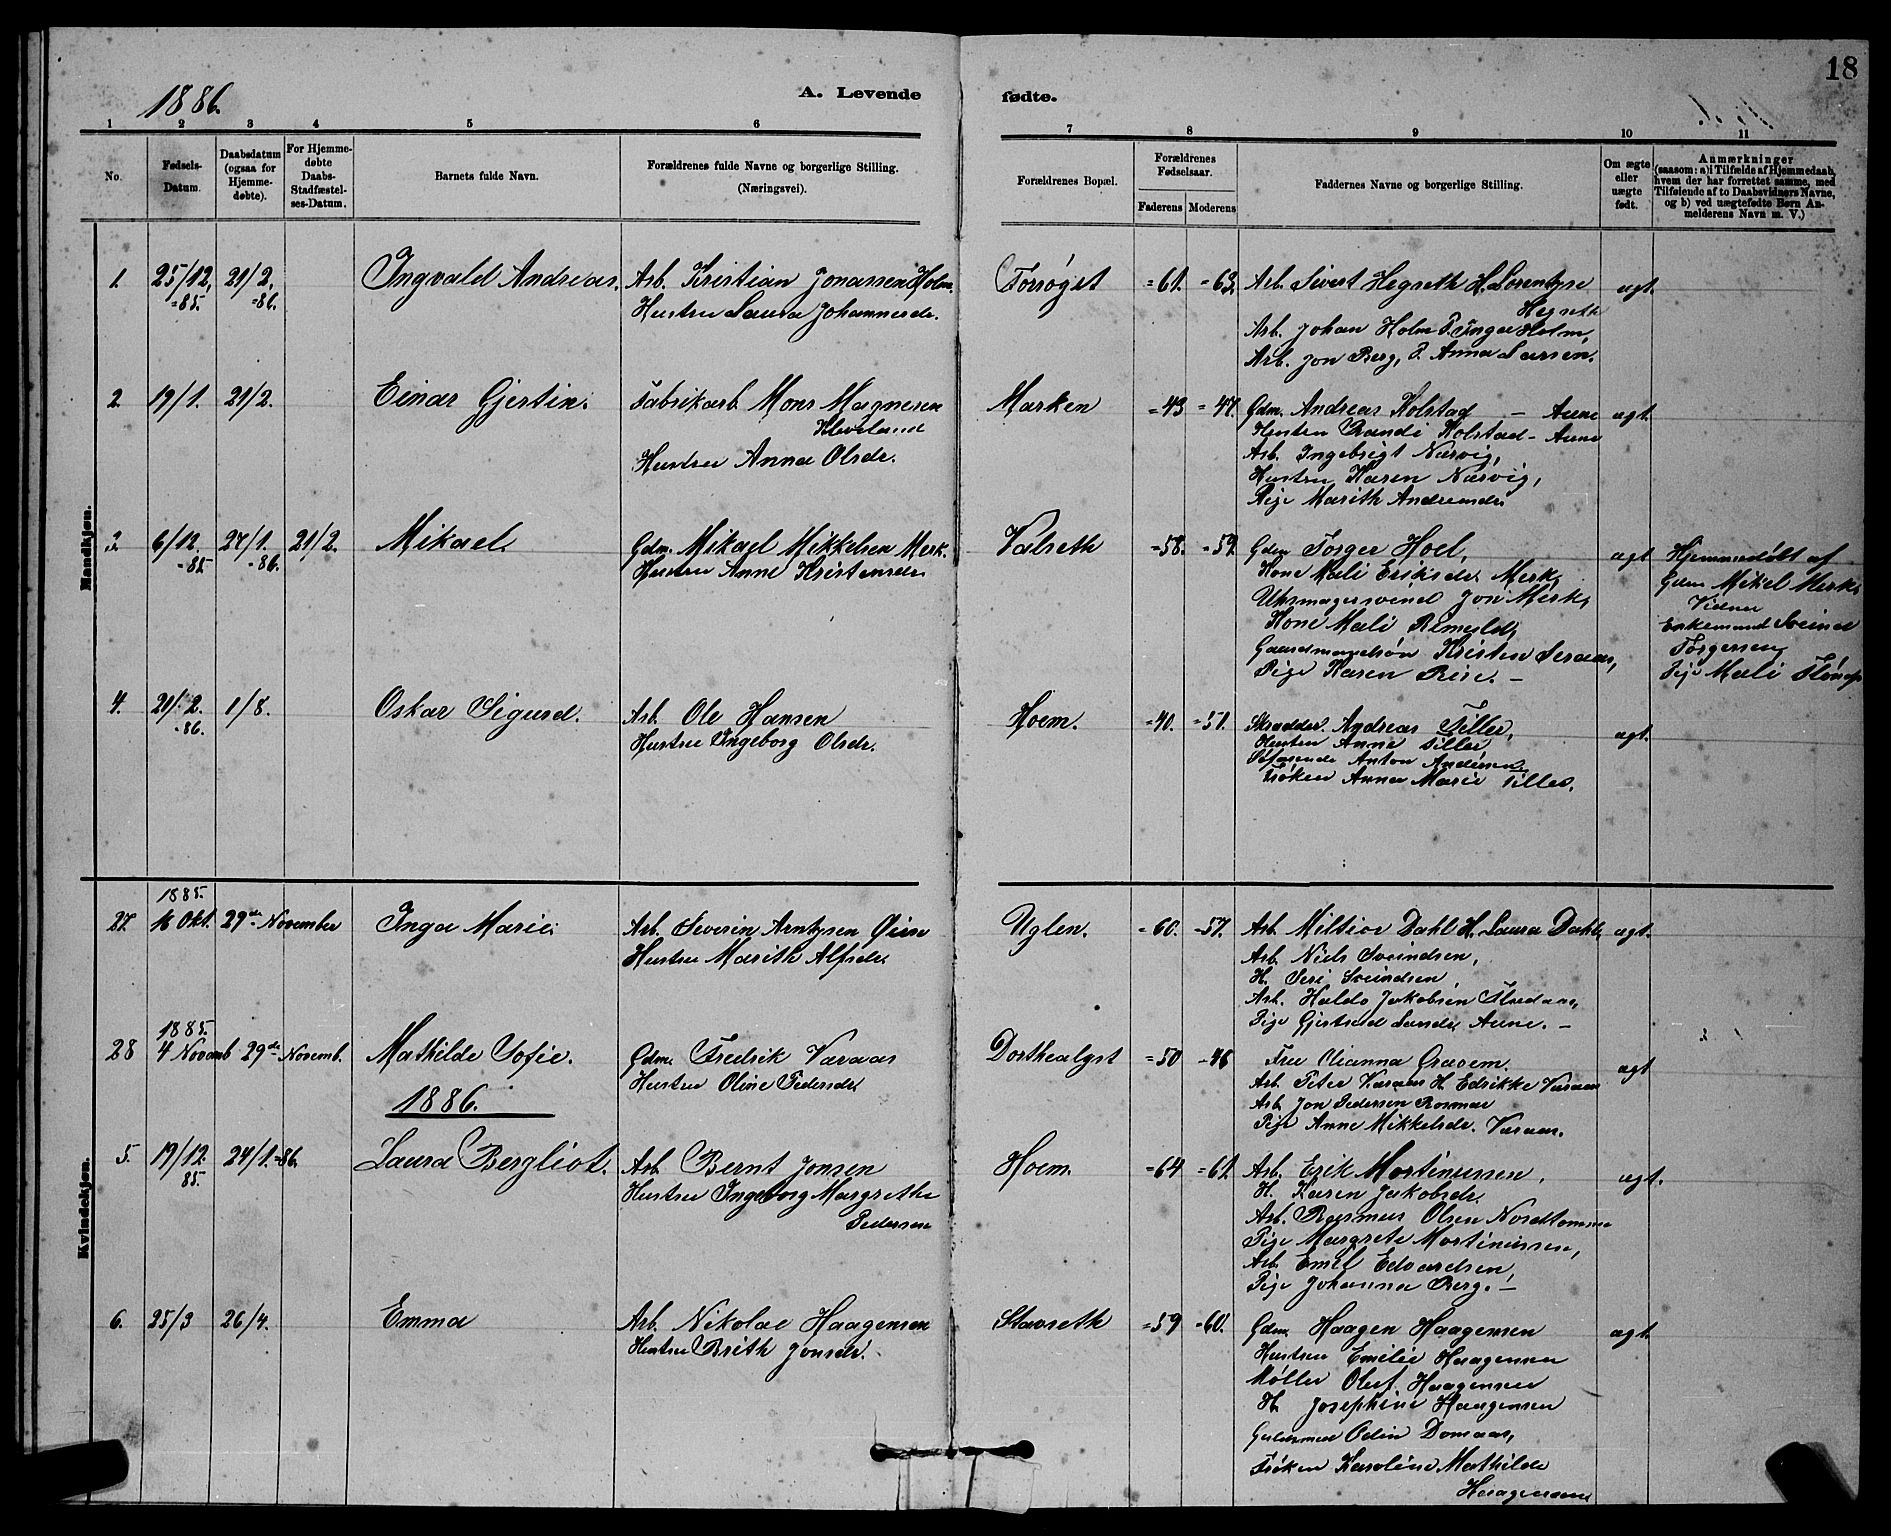 18
1886.
A. Levende fødte.
1 2 3 4 5 6 7 8 9 10 11
No.
Fødsels-Datum.
Daabsdatum (ogsaa for Hjemmedøbte).
For Hjemmedøbte Daabs-Stadfæstelses-Datum.
Barnets fulde Navn.
Forældrenes fulde Navne og borgerlige Stilling.
(Næringsvei).
Forældrenes Bopæl.
Forældrenes Fødselsaar.
Faderens Moderens
Faddernes Navne og borgerlige Stilling.
Om ægte eller uægte født.
Anmærkninger
(saasom: a) i Tilfælde af Hjemmedaab, hvem der har forrettet samme, med Tilføiende af to Daabsvidners Navne, og b) ved uægtefødte Børn Anmelderens Navn m. V.)
Mandkjøn.
1. 25/12 -85. 21/2 -86. Ingvald Andreas.
Arb. Kristian Jonassen Holm.
Hustru Laura Johannesdr.
=61. =63.
Arb. Sivert Hegseth H. Lorentyne
Hegseth
Arb. Johan Holm P. Inga Holm,
Arb. Jon Berg, P. Anna Larsen.
ægt.
2. 19/1. 21/2. Einar Gjertin.
Fabrikarb. Mons Magnesen
Kleveland
Hustru Anna Olsdr.
Marken =43 =47.
Gdm. Andreas Kolstad – Aune
Hustru Randi Kolstad - Aune
Arb. Ingebrigt Narvig,
Hustru Karen Narvig,
Pige Marith Andreasdr.
ægt.
3. 6/12 -85 24/1. -86. 21/2. Mikael.
Gdm. Mikael Mikkelsen Merk.
Hustru Anne Kristensdr.
Valseth =58. =59.
Gdm Torger Hoel,
Kone Mali Eriksdr. Merk,
Uhrmagersvend Jon Merk,
Kone Mali
Gaardmandssøn Kristen
Pige Karen
ægt
Hjemmedøbt af
Gdm Mikal Merk.
Vidner
Enkemand Sveind
Torgersen,
Pige Mali
4. 21/2. -86. 1/8. Oskar Sigurd.
Arb. Ole Hansen
Hustru Ingeborg Olsdr.
Hoem. =40. =51.
Skrædder. Andreas Tiller,
Hustru Anne Tiller
Søfarende Anton Andersen,
Frøken Anna Marie Tiller.
ægt.
Kvindekjøn.
1885.
27. 16 Okt. 29de November Inga Marie.
Arb. Severin Arntsen
Hustru Marith Alfsdr.
Uglen. =60. -57.
Arb. Dahl H. Laura Dahl,
Arb. Niels Sveindsen,
H. Seri Sveindsen,
Arb. Haldo Jakobsen
Pige Gjertrud Aune. –
ægt.
1885.
28 4 Novemb 29de Novemb. Mathilde Sofie.
Gdm. Fredrik Varaas
Hustru Oline Pedersdr.
Dorthealyst =50 -46
Fru Græsem.
Arb. Peter Varaas H. Edrikke Varaas
Arb. Jon Pedersen
Pige Anne Mikkelsdr. Varaas.
ægt
1886.
5. 19/12. 85. 24/1.-86. Laura Bergliot.
Arb. Bernt Jonsen
Hustru Ingeborg Margrethe
Pedersen
Hoem =64 =61.
Arb. Erik Mortinussen,
H. Karen Jakobsdr.
Arb. Rasmus Olsen Nordtømme
Pige Margrete Mortinussen,
Arb. Emil Edvardsen
Pige Johanna Berg. –
ægt.
6. 25/3 26/4. Emma
Arb. Nikolai Haagensen
Hustru Brith Jonsdr.
Stavseth =59 =60.
Gdm. Haagen Haagensen
Hustru Emilie Haagensen
Møller Oluf Haagensen
H. Josephine Haagensen
Odin Domaas,
Frøken Karoline Mathilde
Haagensen
ægt.